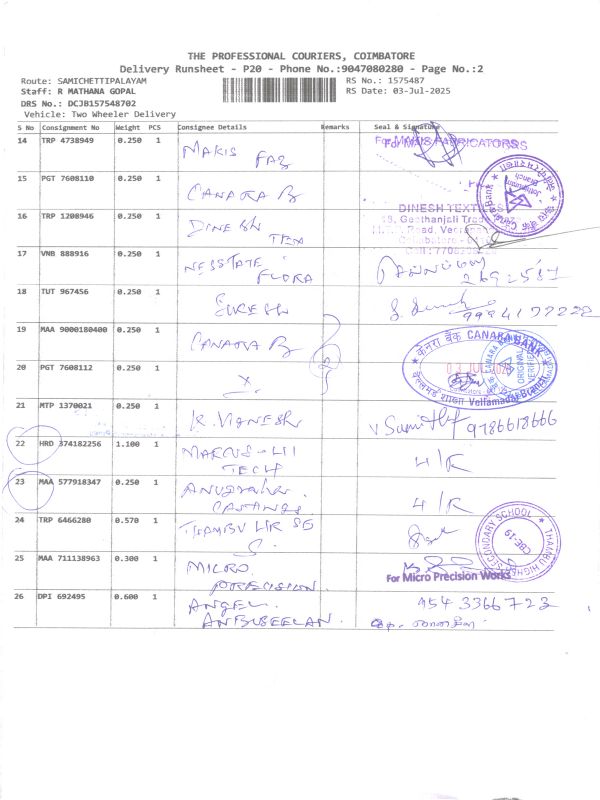 THE PROFESSIONAL COURIERS, COIMBATORE
Delivery Runsheet - P20 - Phone No.:9047080280 - Page No.:2
Route: SAMICHETTIPALAYAM
RS No.: 1575487
Staff: R MATHANA GOPAL
RS Date: 03-Jul-2025
DRS No.: DCJB157548702
Vehicle: Two Wheeler Delivery
S No Consignment No Weight PCS Consignee Details Remarks Seal & Signature
14 TRP 4738949 0.250 1 MAKIS FAB For MAKIS FABRICATORS
15 PGT 7608110 0.250 1 CANARA B
16 TRP 1208946 0.250 1 DINESH TEX DINESH TEXTILES
17 VNB 888916 0.250 1 FLORA
18 TUT 967456 0.250 1 SURESH 9994177222
19 MAA 9000180400 0.250 1 CANARA B केनरा बैंक CANARA BANK
20 PGT 7608112 0.250 1 Vellamadai Branch
21 MTP 1370021 0.250 1 K. VIGNESH 9786618666
22 HRD 374182256 1.100 1 MARCUS-HI TECH 4/R
23 MAA 577918347 0.250 1 CASTINGS 4/R
24 TRP 6466280 0.570 1 THAMBU HR SE S. THAMBU HIGHER SECONDARY SCHOOL CBE-19
25 MAA 711138963 0.300 1 MICRO PRECISION. For Micro Precision Works
26 DPI 692495 0.600 1 ANGEL. ANBUSEELAN. 954 3366 723